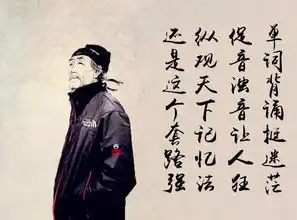 单词背诵挺迷茫
促音浊音让人狂
纵观天下记忆法
还是这个套路强